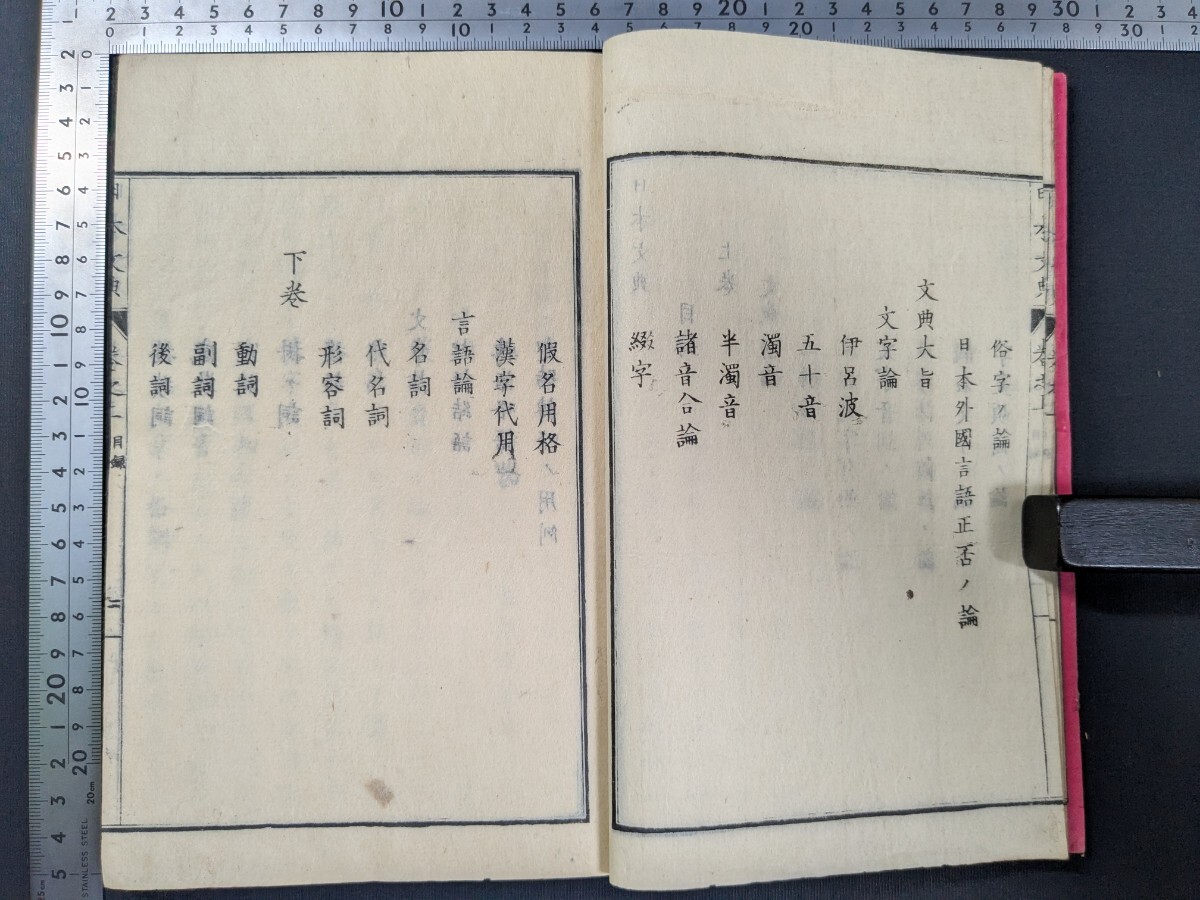 俗字 論
日本外國言語正否ノ論
文典大旨
文字論
伊呂波
五十音
濁音
半濁音
諸音合論
綴字
假名用格
漢字代用
言語論
名詞
代名詞
形容詞
下巻
動詞
副詞
後詞
目録
STAINLESS STEEL